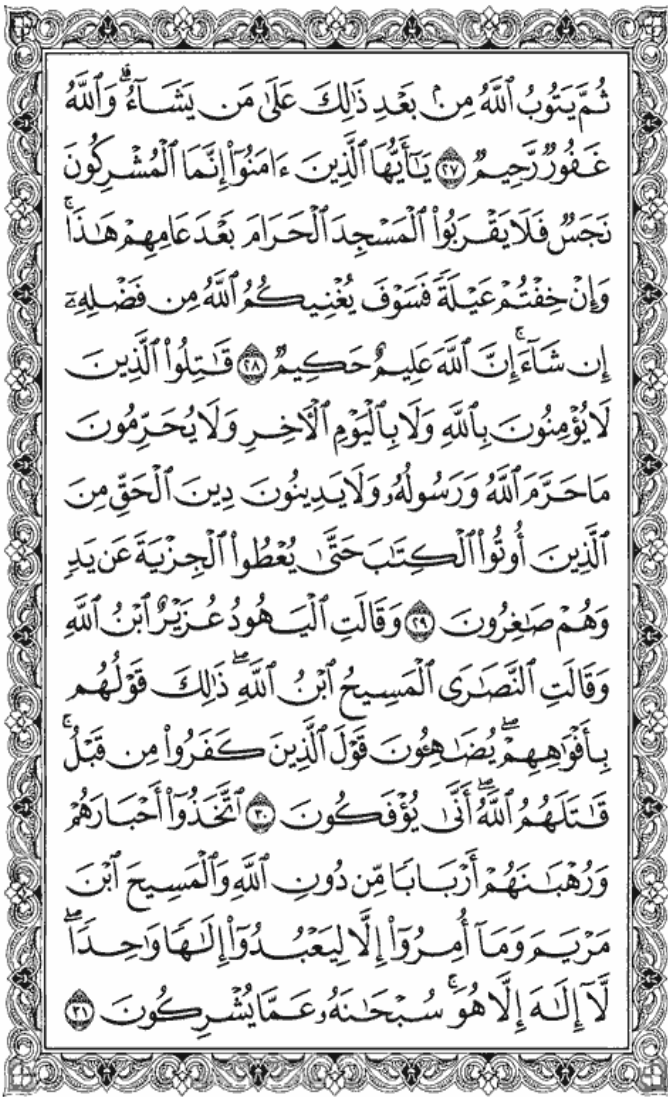 ثُمَّ يَتُوبُ ٱللَّهُ مِنۢ بَعْدِ ذَٰلِكَ عَلَىٰ مَن يَشَآءُۗ وَٱللَّهُ
غَفُورٌ رَّحِيمٌ ٢٧ يَـٰٓأَيُّهَا ٱلَّذِينَ ءَامَنُوٓا۟ إِنَّمَا ٱلْمُشْرِكُونَ
نَجَسٌ فَلَا يَقْرَبُوا۟ ٱلْمَسْجِدَ ٱلْحَرَامَ بَعْدَ عَامِهِمْ هَـٰذَاۚ
وَإِنْ خِفْتُمْ عَيْلَةً فَسَوْفَ يُغْنِيكُمُ ٱللَّهُ مِن فَضْلِهِۦٓ
إِن شَآءَۚ إِنَّ ٱللَّهَ عَلِيمٌ حَكِيمٌ ٢٨ قَـٰتِلُوا۟ ٱلَّذِينَ
لَا يُؤْمِنُونَ بِٱللَّهِ وَلَا بِٱلْيَوْمِ ٱلْـَٔاخِرِ وَلَا يُحَرِّمُونَ
مَا حَرَّمَ ٱللَّهُ وَرَسُولُهُۥ وَلَا يَدِينُونَ دِينَ ٱلْحَقِّ مِنَ
ٱلَّذِينَ أُوتُوا۟ ٱلْكِتَـٰبَ حَتَّىٰ يُعْطُوا۟ ٱلْجِزْيَةَ عَن يَدٍ
وَهُمْ صَـٰغِرُونَ ٢٩ وَقَالَتِ ٱلْيَهُودُ عُزَيْرٌ ٱبْنُ ٱللَّهِ
وَقَالَتِ ٱلنَّصَـٰرَى ٱلْمَسِيحُ ٱبْنُ ٱللَّهِۖ ذَٰلِكَ قَوْلُهُم
بِأَفْوَٰهِهِمْۖ يُضَـٰهِـُٔونَ قَوْلَ ٱلَّذِينَ كَفَرُوا۟ مِن قَبْلُۚ
قَـٰتَلَهُمُ ٱللَّهُۖ أَنَّىٰ يُؤْفَكُونَ ٣٠ ٱتَّخَذُوٓا۟ أَحْبَارَهُمْ
وَرُهْبَـٰنَهُمْ أَرْبَابًا مِّن دُونِ ٱللَّهِ وَٱلْمَسِيحَ ٱبْنَ
مَرْيَمَ وَمَآ أُمِرُوٓا۟ إِلَّا لِيَعْبُدُوٓا۟ إِلَـٰهًا وَٰحِدًاۖ
لَّآ إِلَـٰهَ إِلَّا هُوَۚ سُبْحَـٰنَهُۥ عَمَّا يُشْرِكُونَ ٣١